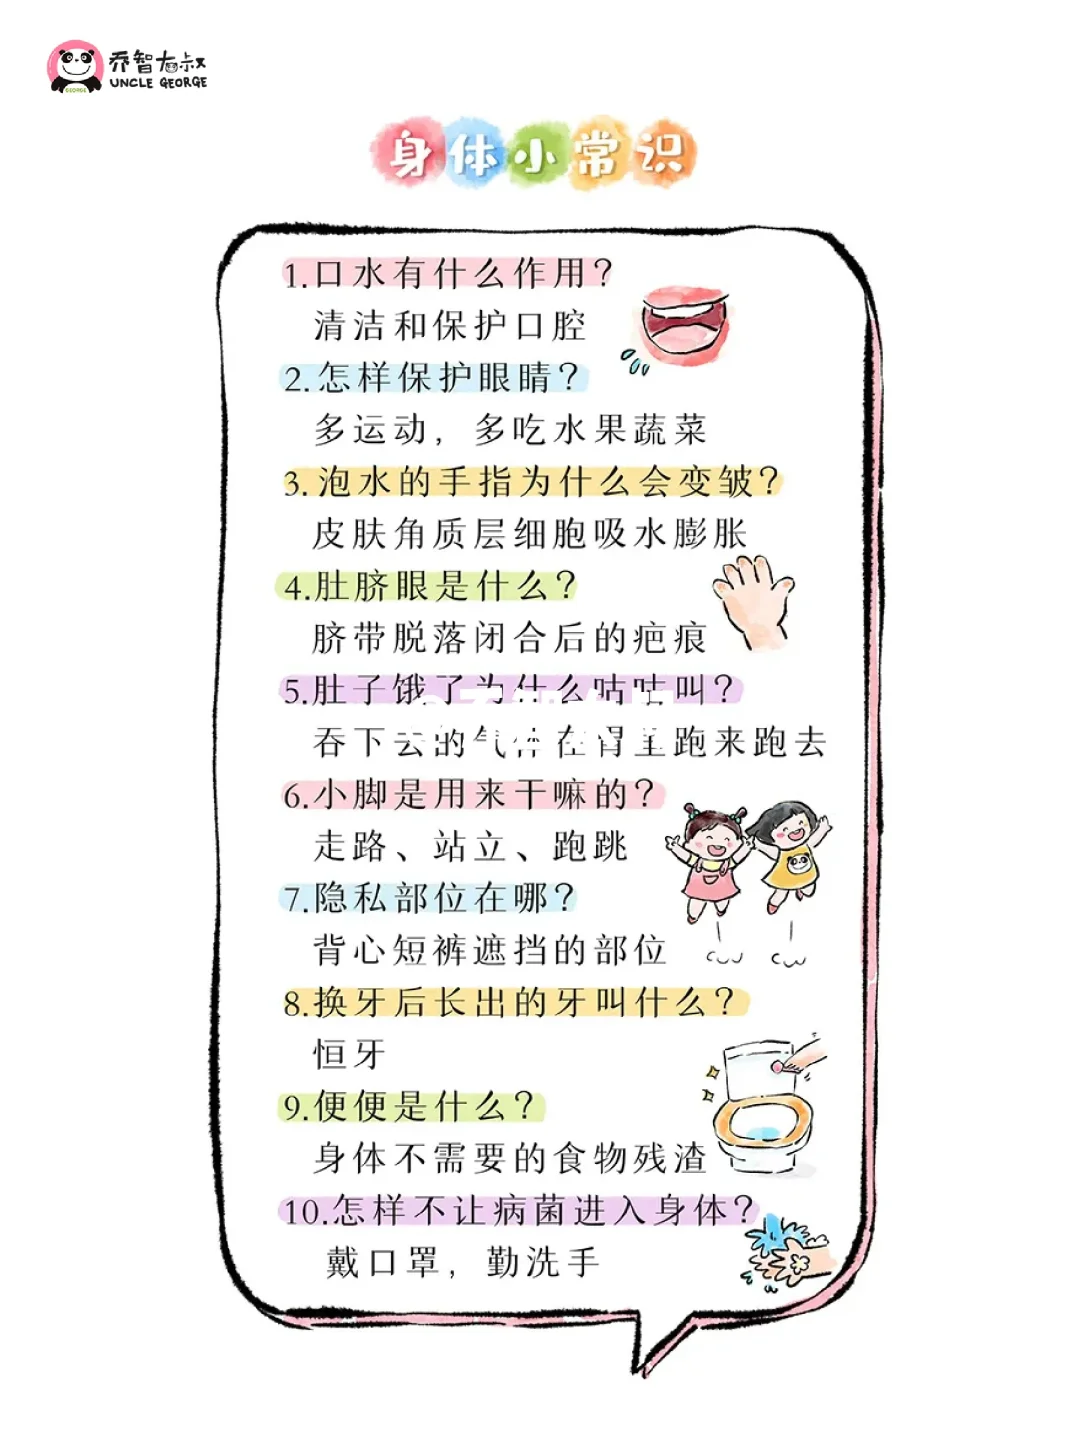 乔智大叔
UNCLE GEORGE
GEORGE
身体小常识
1.口水有什么作用？
清洁和保护口腔
2.怎样保护眼睛？
多运动，多吃水果蔬菜
3.泡水的手指为什么会变皱？
皮肤角质层细胞吸水膨胀
4.肚脐眼是什么？
脐带脱落闭合后的疤痕
5.肚子饿了为什么咕咕叫？
吞下去的气体在胃里跑来跑去
6.小脚是用来干嘛的？
走路、站立、跑跳
7.隐私部位在哪？
背心短裤遮挡的部位
8.换牙后长出的牙叫什么？
恒牙
9.便便是什么？
身体不需要的食物残渣
10.怎样不让病菌进入身体？
戴口罩，勤洗手